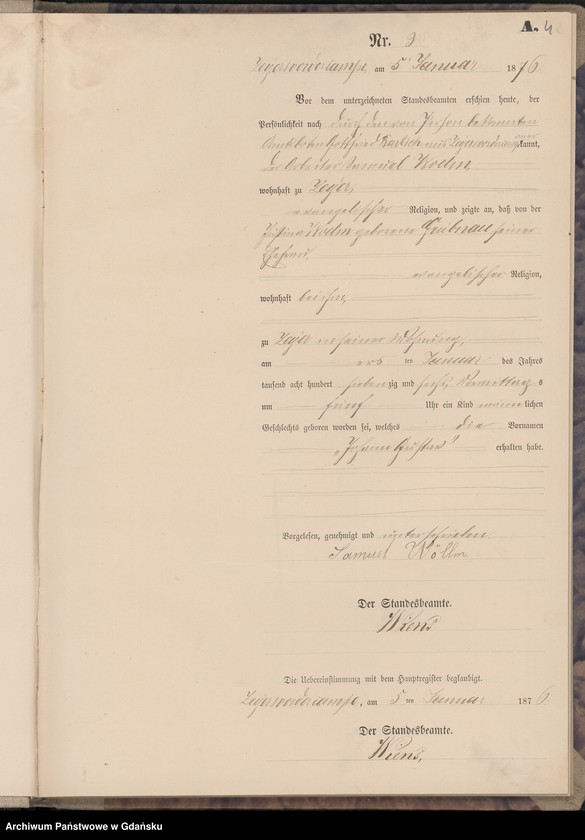 A. 4
Nr. 3
Zeyersvorderkampe, am 5 Januar 1876
Vor dem unterzeichneten Standesbeamten erschien heute, der
Persönlichkeit nach durch den von Person bekannten
Amtsboten Gottfried aus kannt,
der Arbeiter Samuel Wöllm
wohnhaft zu Zeyer,
evangelischer Religion, und zeigte an, daß von der
Justina Wöllm geborene seiner
Ehefrau
evangelischer Religion,
wohnhaft bei ihm,
zu Zeyer in seiner Wohnung,
am ten Januar des Jahres
tausend acht hundert siebenzig und sechs Vormittags
um fünf Uhr ein Kind männlichen
Geschlechts geboren worden sei, welches die Vornamen
„Johann Gustav“ erhalten habe.
Vorgelesen, genehmigt und unterschrieben
Samuel Wöllm
Der Standesbeamte.
Wiens
Die Uebereinstimmung mit dem Hauptregister beglaubigt.
Zeyersvorderkampe, am 5 ten Januar 1876.
Der Standesbeamte.
Wiens.
Archiwum Państwowe w Gdańsku